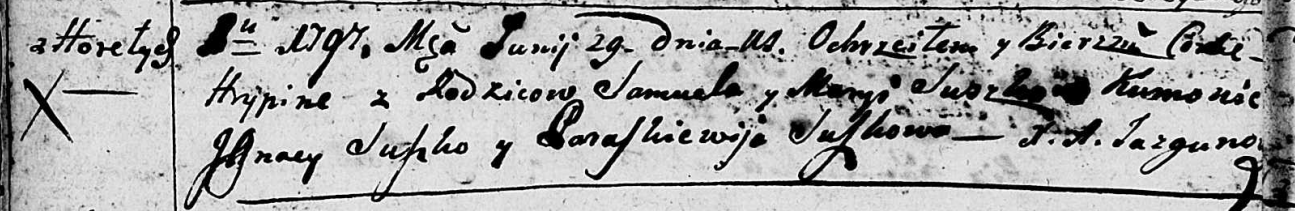 z Horełych Ru 1797, Msca Junij 29- dnia-
Ochrzciłem y Bierzm Corkę
Hrypinę z Rodzicow Samuela y Maryi Suszkow Kumowie
JGnacy Suszko y Paraskiewija Suszkowa — J. A. Jazgunow